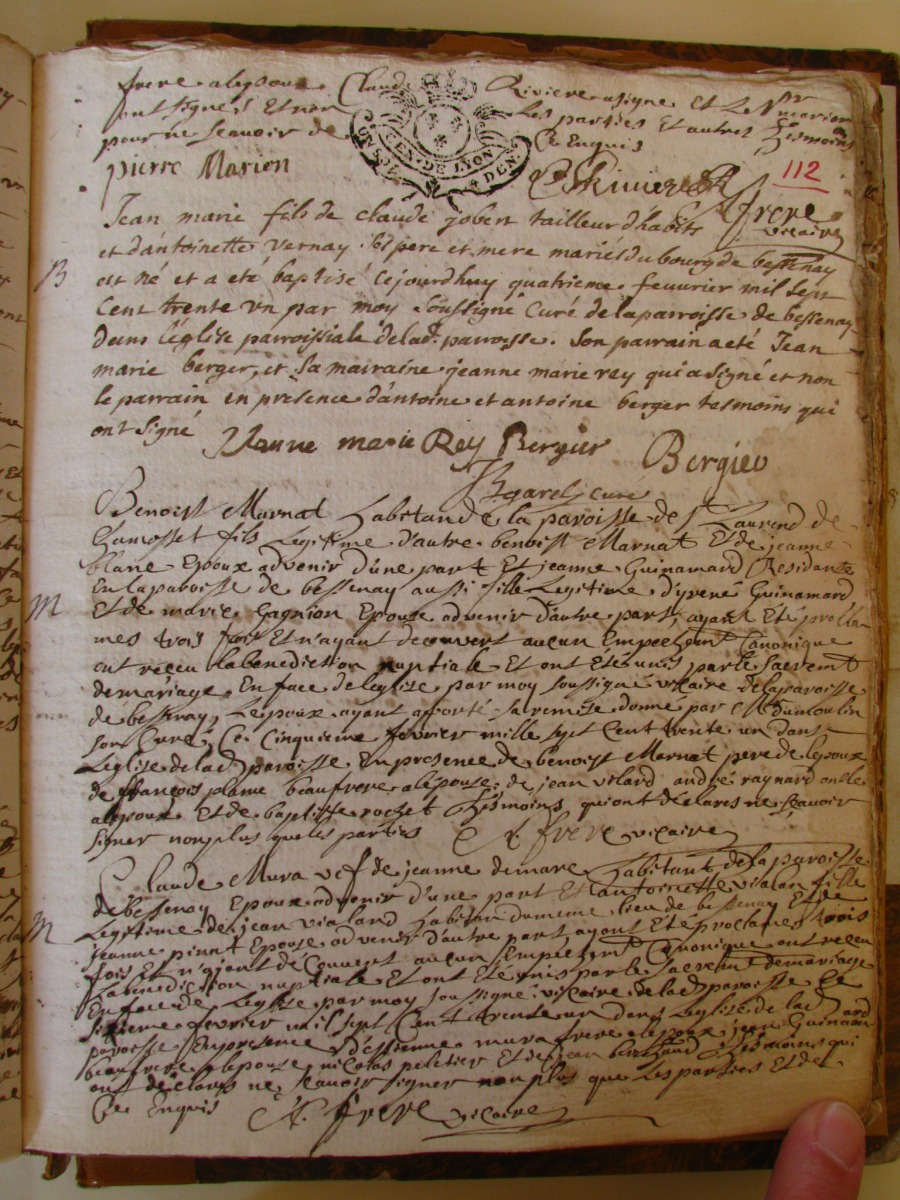 frere alepoux Claude Riviere asigne Et le Sr marion
ont signes Et non les parties Et autres tesmoins
pour ne scavoir de ce Enquis
GEN. DE LYON
UN SOL DEN.
pierre Marion C Riviere
112
A frere vicaire
Jean marie fils de claude jobert tailleur d'habits
et d'antoinette vernay ses pere et mere mariés du bourg de bessenay
B
est né et a eté baptisé cejourdhuy quatrieme feuurier mil sept
cent trente vn par moy soussigné curé de la parroisse de bessenay
dans l'église parroissiale de lad. parroisse. son parrain a eté Jean
marie berger, et sa mairaine jeanne marie rey qui a signé et non
le parrain en presence d'antoine et antoine berger tesmoins qui
ont signé
Jeanne marie Rey Bergier Bergier
curé
Benoist Marnat habitant de la paroisse de St Laurend de
Chamosset fils Legitime d'autre benoist Marnat Et de jeanne
blanc Epoux advenir d'une part Et jeanne Guinamard Residante
En la paroisse de bessenay aussi fille Legitime d'yrené Guinamard
M
Et de marie Gagnion Epouse advenir d'autre part, ayant Eté procla
mes trois fois Et n'ayant decouvert aucun Empechemt Canonique
ont reçeu la benediction nuptiale Et ont Eté unis par le Sacremt
de mariage En face de leglise par moy soussigné vicaire de la paroisse
de bessenay, Lepoux ayant aporté sa remise donné par Mr
son Curé, Ce Cinquieme fevrier mille sept Cent trente un dans
Leglise de lad paroisse En presence de benoist Marnat pere de lepoux
de françois plame beaufrere alepouse, de jean vilard andré raynard oncle
alepoux Et de baptiste rochet tesmoins qui ont declares ne scavoir
signer non plus que les parties A. frere vicaire
Claude Mura vef de jeanne demare habitant de la paroisse
de bessenay Epoux advenir d'une part Et antoinette vialan fille
Legitime de jean vialand habitan du meme lieu de bessenay Et de
M
jeanne Epouse advenir d'autre part ayant Eté proclames trois
fois Et n'ayant deCouvert aucun Empechemt Canonique ont reçeu
la benediction nuptiale Et ont Eté unis par le Sacremt de mariage
En face de Leglise par moy soussigné vicaire de lad paroisse Ce
sixieme fevrier mil sept Cent trente un dans Leglise de lad
paroisse En presence d'estienne mura frere alepoux jean Guinamard
beaufrere alepouse nicolas peletier Et de jean tesmoins qui
ont declares ne scavoir signer non plus que Les parties Et de
Ce Enquis A. frere vicaire